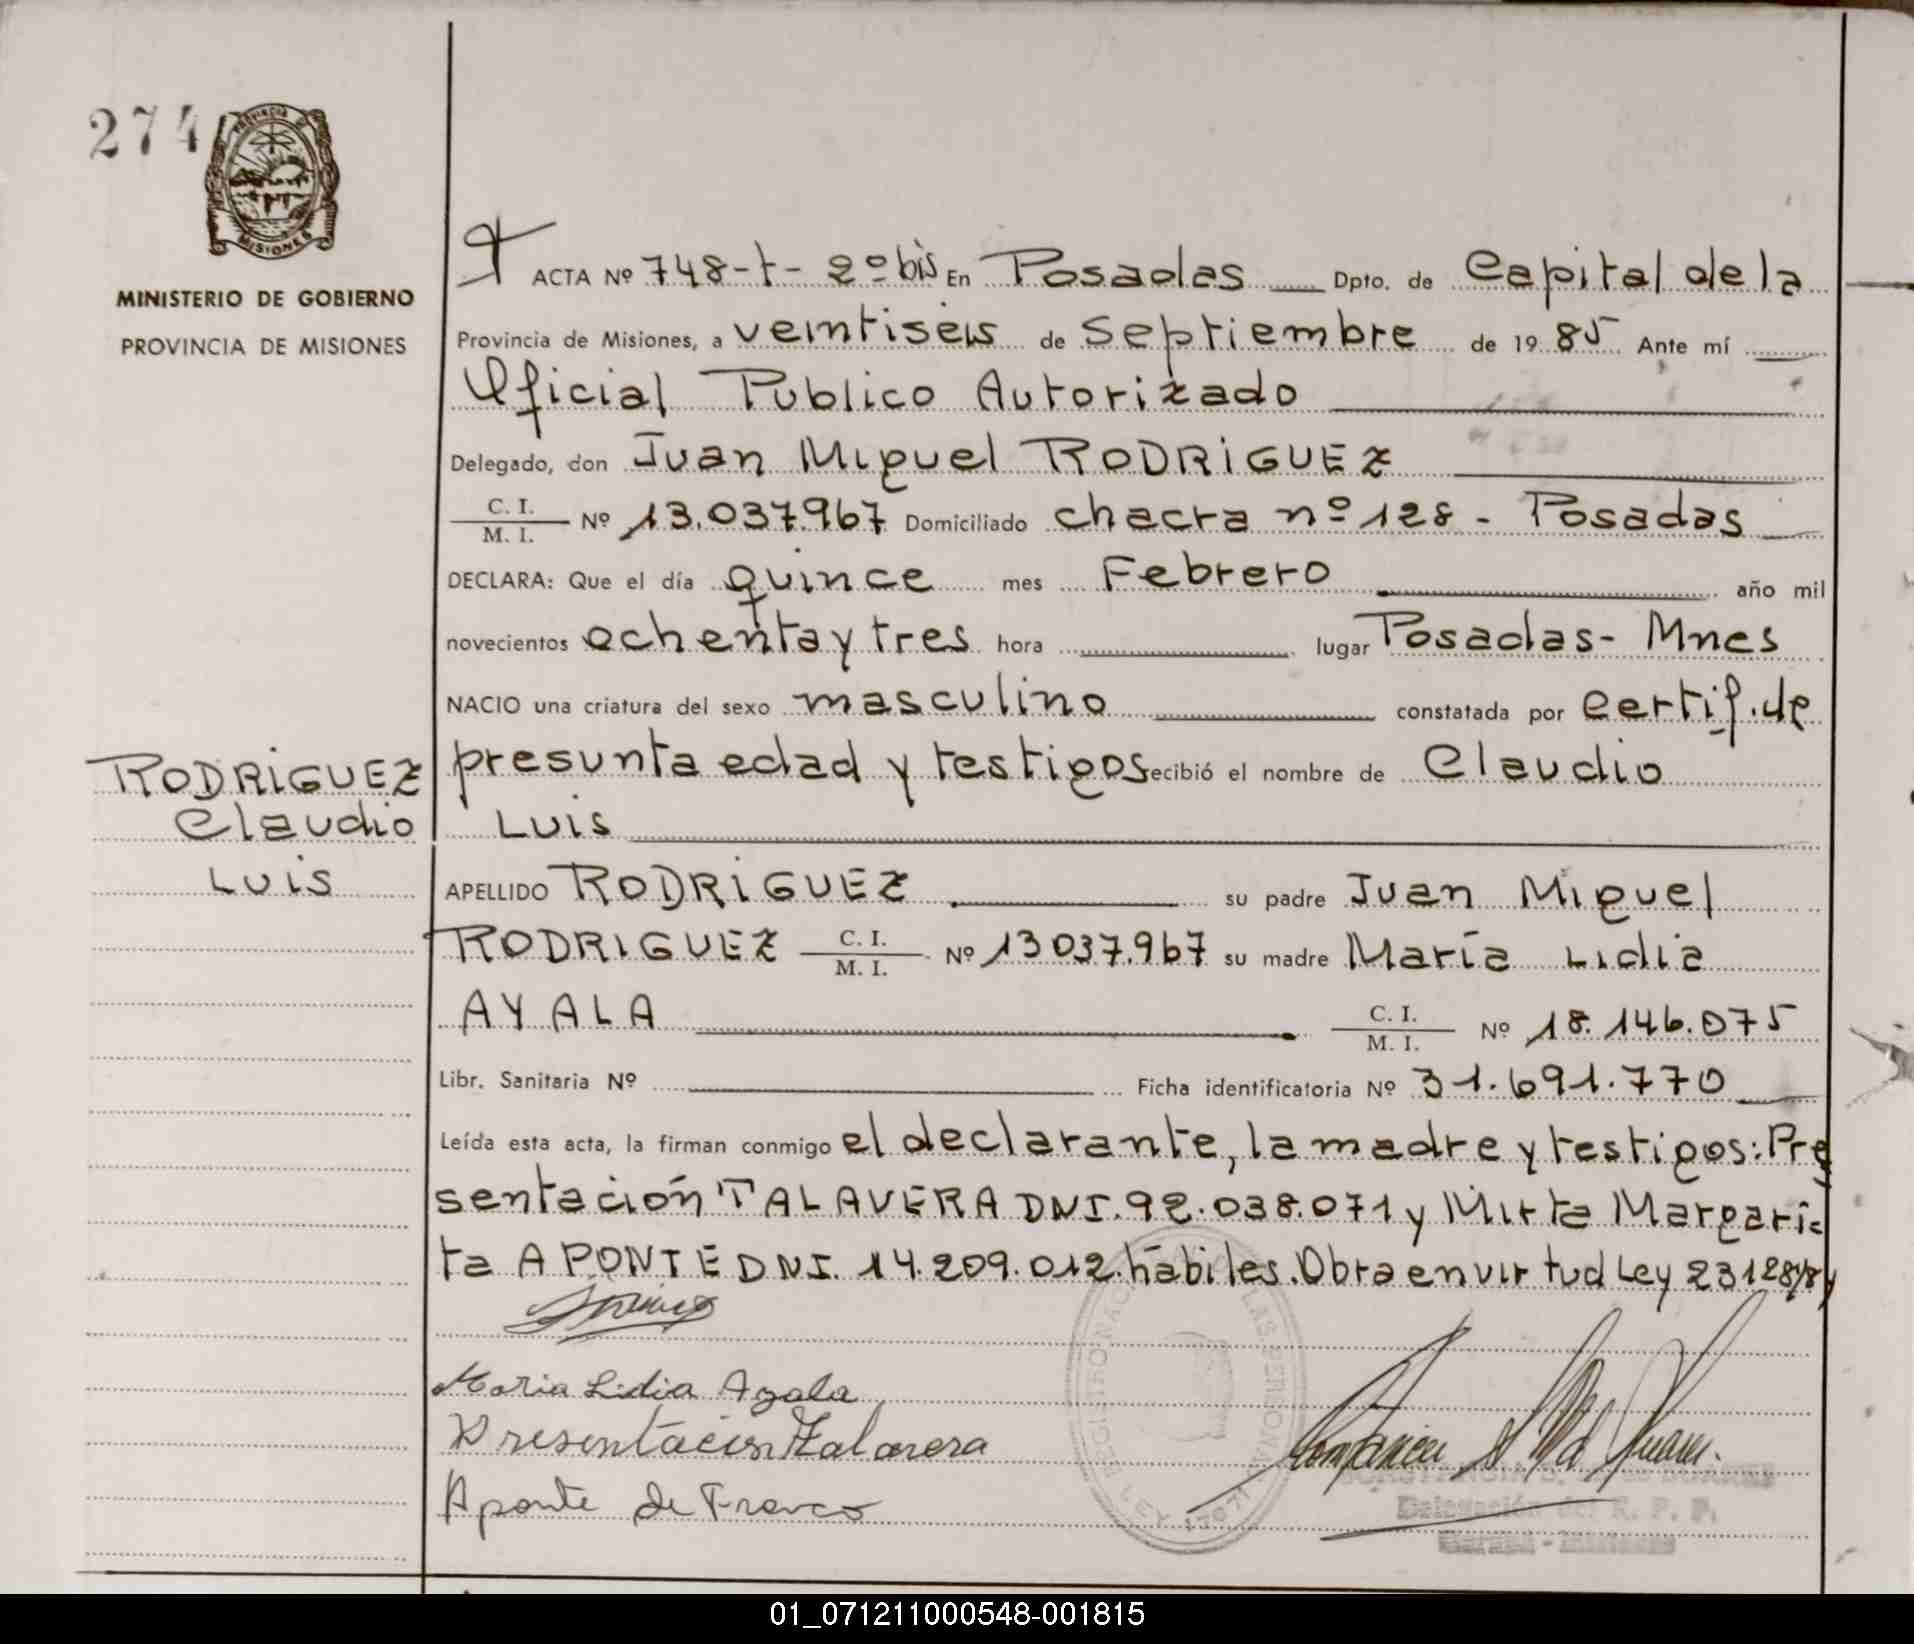 274
PROVINCIA DE
MISIONES
MINISTERIO DE GOBIERNO
PROVINCIA DE MISIONES
ACTA Nº 748-t- 2º bis En Posadas Dpto. de Capital de la
Provincia de Misiones, a veintiseis de Septiembre de 1985 Ante mí
Oficial Publico Autorizado
Delegado, don Juan Miguel RODRIGUEZ
C. I.
M. I. Nº 13.037.967 Domiciliado chacra nº 128 - Posadas
DECLARA: Que el día quince mes Febrero año mil
novecientos ochenta y tres hora lugar Posadas - Mnes
NACIO una criatura del sexo masculino constatada por certif. de
presunta edad y testigos ecibió el nombre de Claudio
Luis
RODRIGUEZ
Claudio
Luis
APELLIDO RODRIGUEZ su padre Juan Miguel
RODRIGUEZ C. I.
M. I. Nº 13037.967 su madre María Lidia
AYALA C. I.
M. I. Nº 18.146.075
Libr. Sanitaria Nº Ficha identificatoria Nº 31.691.770
Leída esta acta, la firman conmigo el declarante, la madre y testigos: Pre
sentación TALAVERA DNI. 92.038.071 y Mirta Margari
ta APONTE DNI. 14.209.012. hábiles. Obra en virtud Ley 23128/84
Maria Lidia Ayala
Presentación Talavera
Aponte de Franco
REGISTRO NACIONAL DE LAS PERSONAS
LEY 17671
Delegación del R. P. P.
01_071211000548-001815